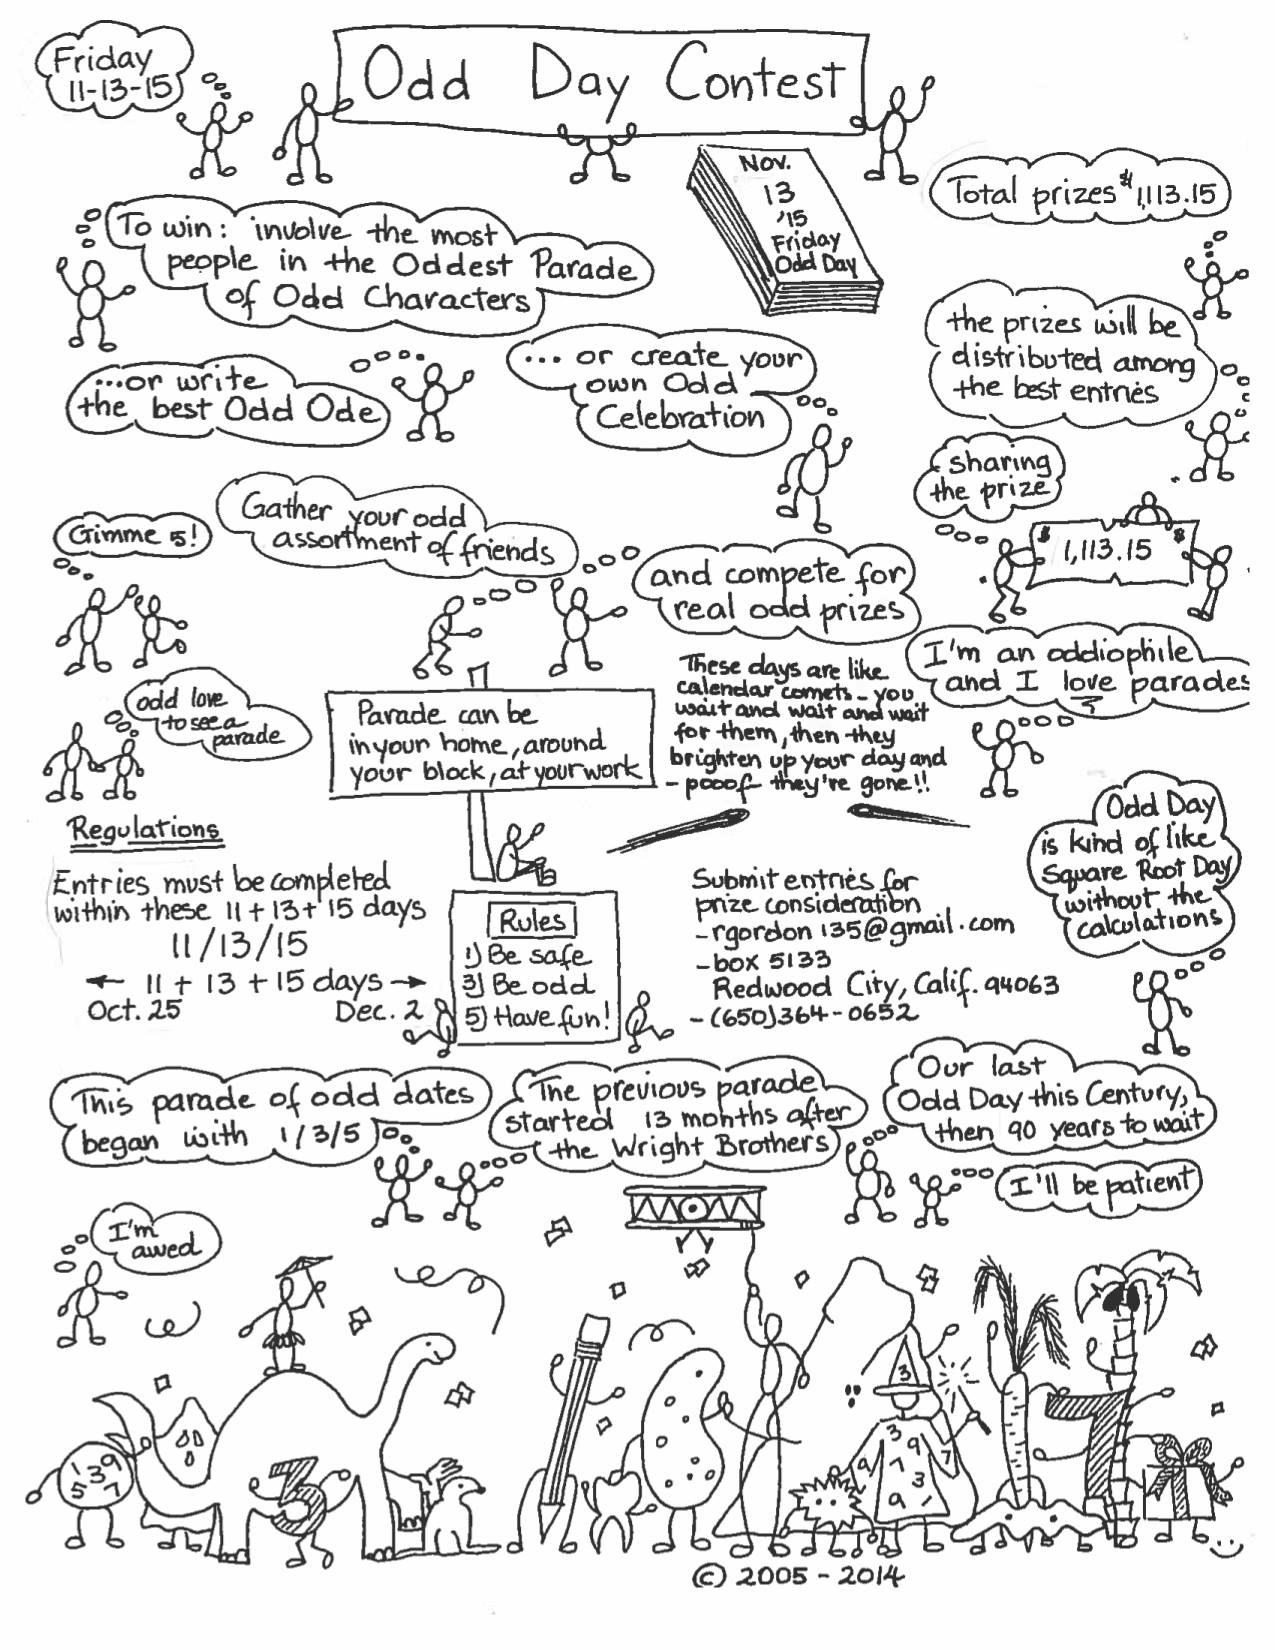 Friday
11-13-15
Odd Day Contest
Nov.
13
'15
Friday
Odd Day
Total prizes $1,113.15
To win: involve the most
people in the Oddest Parade
of Odd Characters
the prizes will be
distributed among
the best entries
...or write
the best Odd Ode
... or create your
own Odd
Celebration
sharing
the prize
$ $
1,113.15
Gimme 5!
Gather your odd
assortment of friends
and compete for
real odd prizes
I'm an oddiophile
and I love parades
odd love
to see a
parade
Parade can be
in your home, around
your block, at your work
These days are like
calendar comets - you
wait and wait and wait
for them, then they
brighten up your day and
- pooof they're gone!!
Odd Day
is kind of like
Square Root Day
without the
calculations
Regulations
Entries must be completed
within these 11+13+15 days
11/13/15
← 11 + 13 + 15 days →
Oct. 25 Dec. 2
Rules
1) Be safe
3) Be odd
5) Have fun!
Submit entries for
prize consideration
- rgordon135@gmail.com
- box 5133
Redwood City, Calif. 94063
- (650)364-0652
This parade of odd dates
began with 1/3/5
The previous parade
started 13 months after
the Wright Brothers
Our last
Odd Day this Century,
then 90 years to wait
I'll be patient
I'm
awed
1 3 9
5 7
3
3
3
9
9
7
7
3
9
1
7
© 2005 - 2014